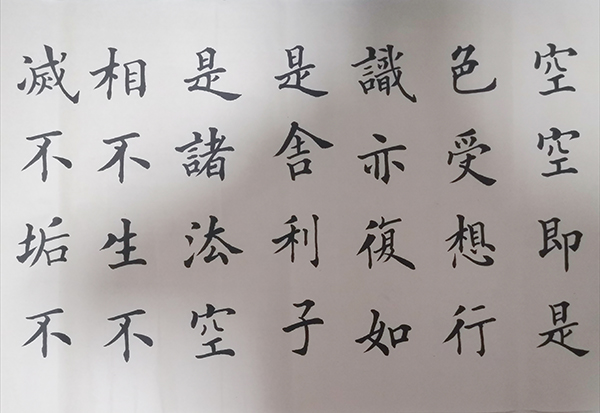 空空即是
色受想行
識亦復如
是舍利子
是諸法空
相不生不
滅不垢不